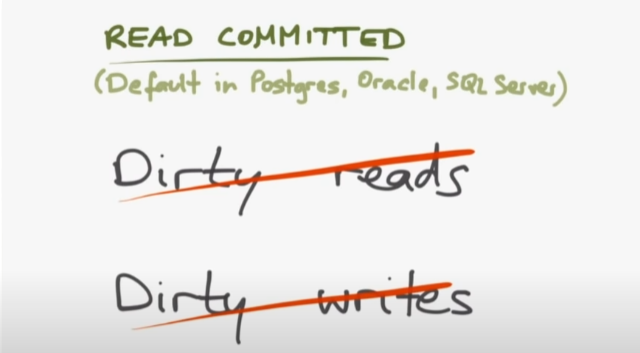 READ COMMITTED
(Default in Postgres, Oracle, SQL Server)
Dirty reads
Dirty writes